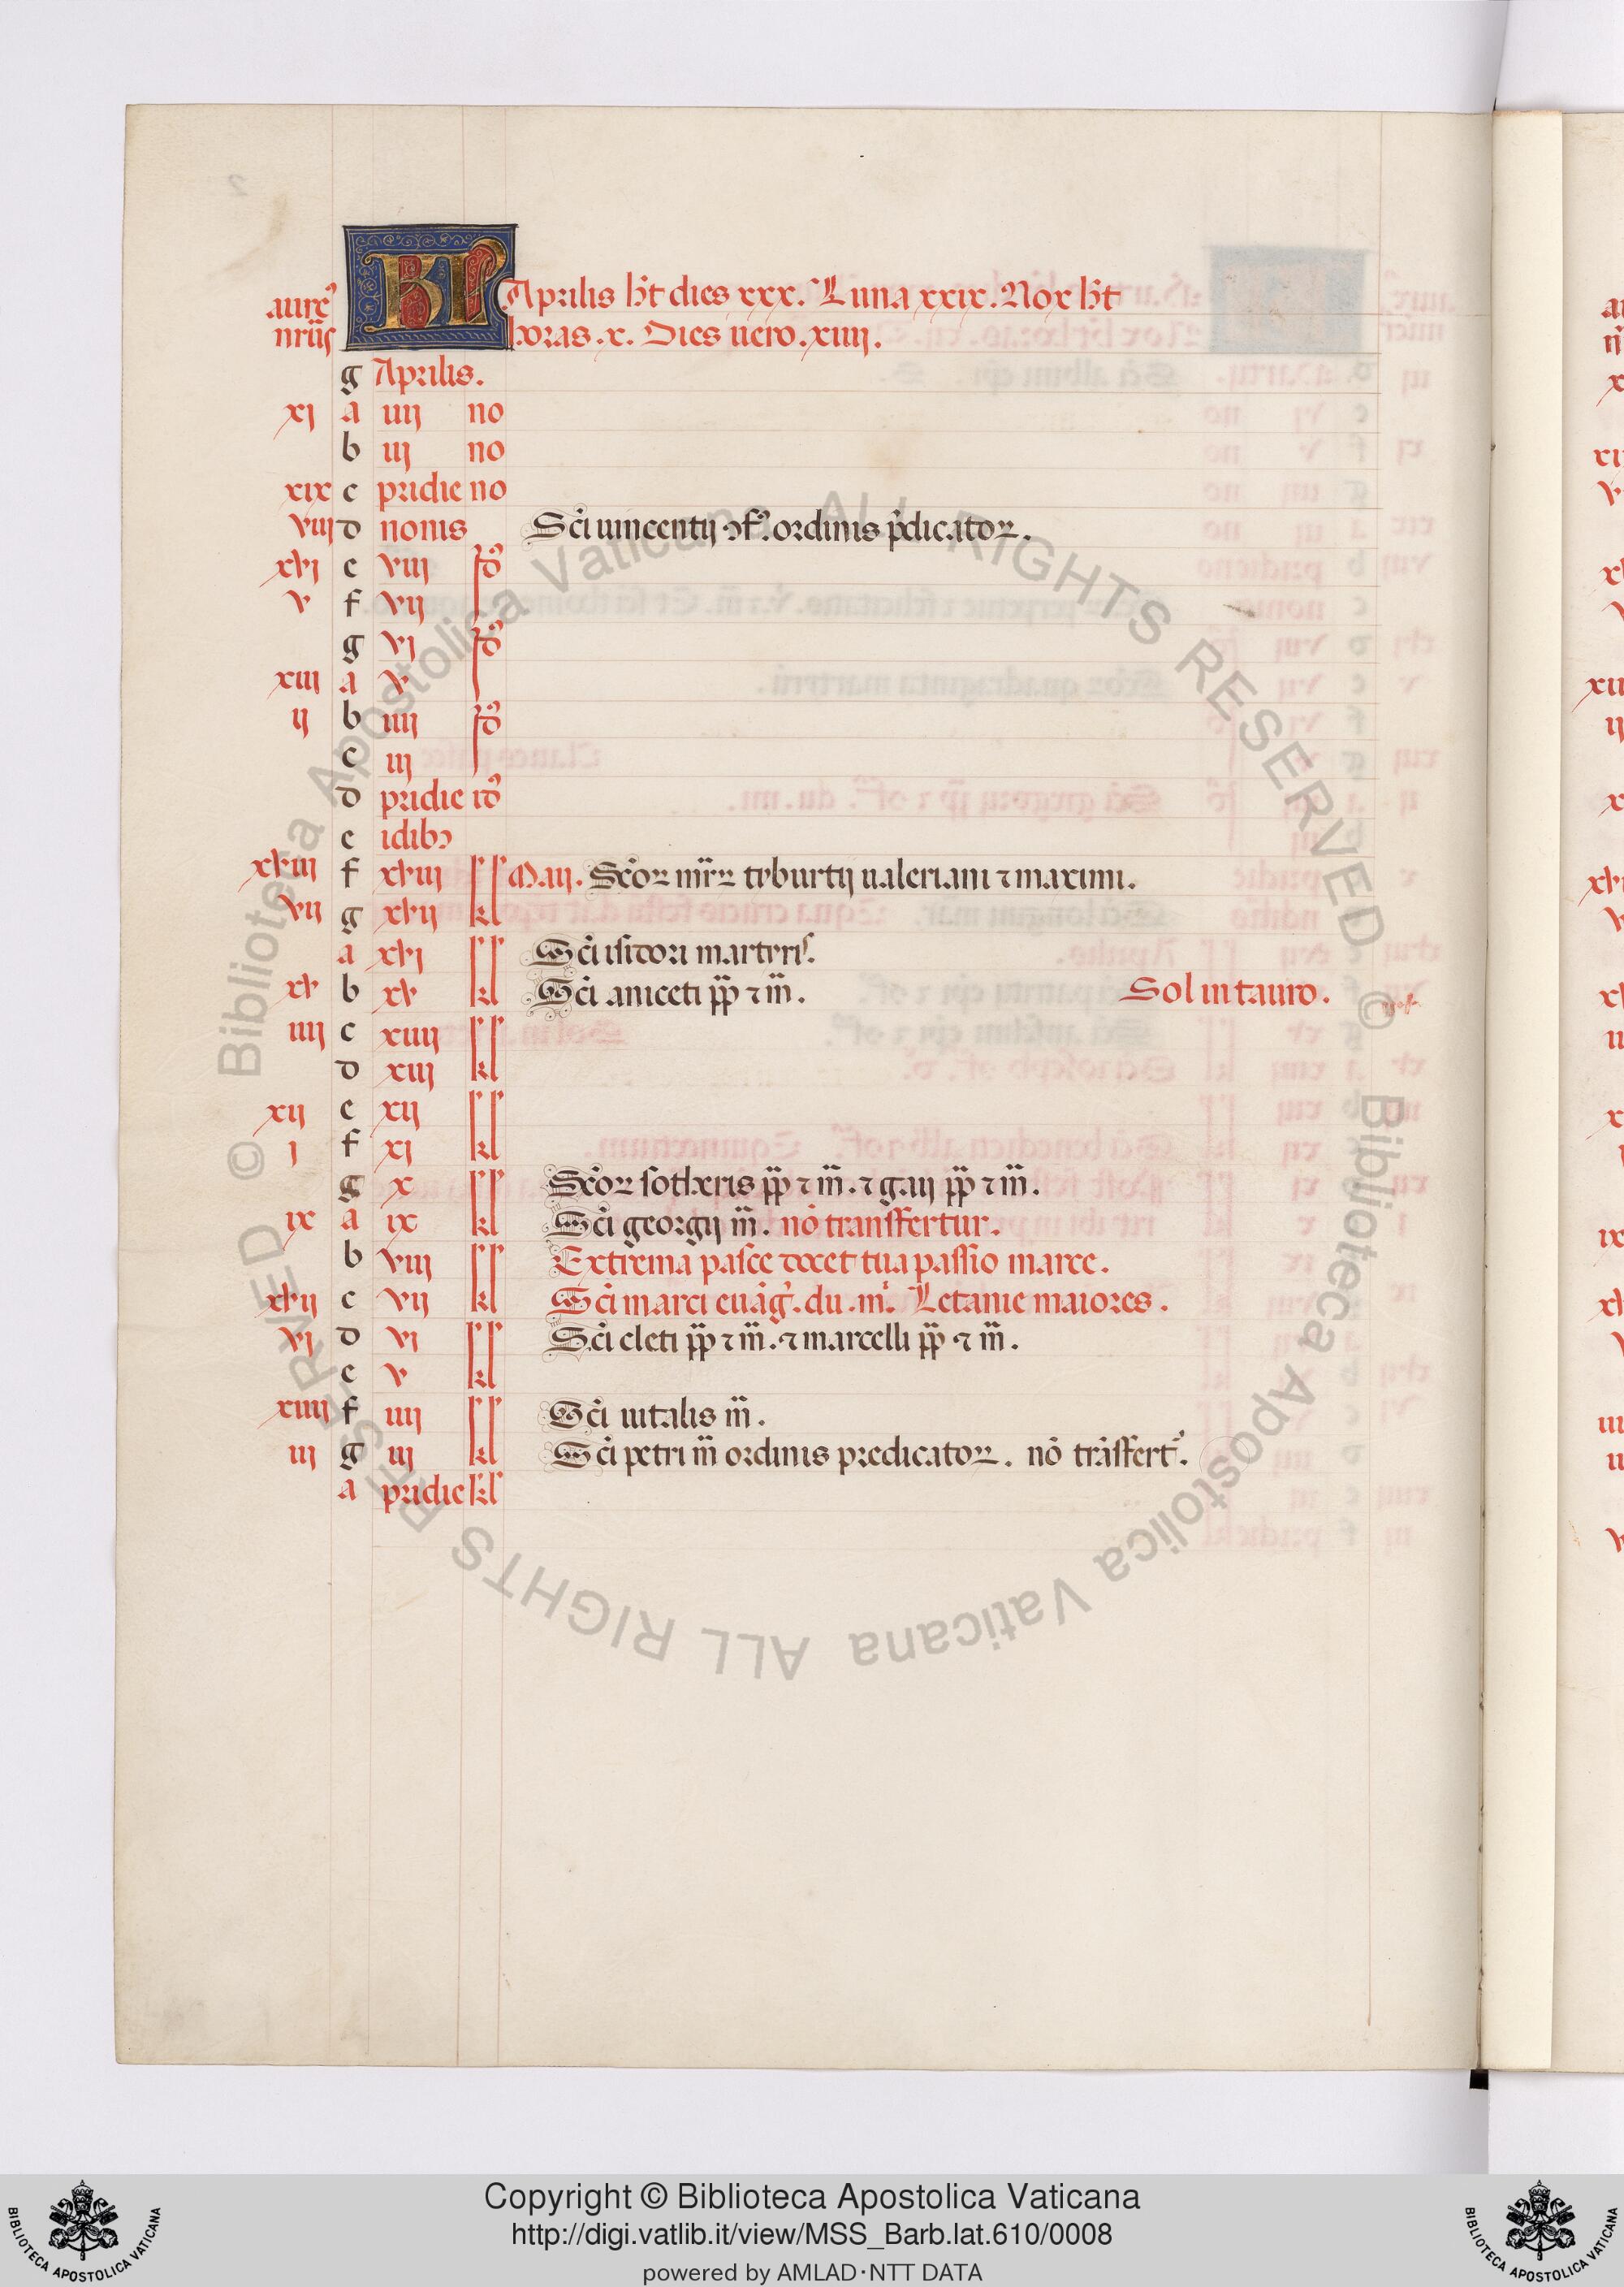 KL Aprilis h̅t dies xxx. Luna xxix. Nox h̅t
aure⁹
nr̅us horas .x. Dies uero .xiiij.
g Aprilis.
xj a iiij no
b iij no
xix c pridie no
viij d nonis Sc̅i uincentij ↄf⁹. ordinis p̅dicatoꝝ.
xvj e viij jd⁹
v f vij
g vj jd⁹
xiij a v
ij b iiij jd⁹
c iij
d pridie id⁹
e idibꝫ
xviij f xviij Maij. Sc̅oꝝ mr̅ꝝ tyburtij ualeriani ⁊ maximi.
vij g xvij kl
a xvj Sc̅i isidori martyris.
xv b xv kl Sc̅i aniceti pp̅ ⁊ m̅. Sol in tauro.
iiij c xiiij
d xiij kl
xij e xij
j f xj kl
g x Sc̅oꝝ sotheris pp̅ ⁊ m̅. ⁊ gaij pp̅ ⁊ m̅.
ix a ix kl Sc̅i georgij m̅. no̅ transffertur.
b viij Extrema pasce docet tua passio marce.
xvij c vij kl Sc̅i marci eua̅g̅. du. mi. Letanie maiores.
vj d vj Sc̅i cleti pp̅ ⁊ m̅. ⁊ marcelli pp̅ ⁊ m̅.
e v kl
xiiij f iiij Sc̅i uitalis m̅.
iij g iij kl Sc̅i petri m̅ ordinis predicatoꝝ. no̅ tra̅sffert᷑.
a pridie kl
© Biblioteca Apostolica Vaticana ALL RIGHTS RESERVED © Biblioteca Apostolica Vaticana ALL RIGHTS RESERVED
Copyright © Biblioteca Apostolica Vaticana
http://digi.vatlib.it/view/MSS_Barb.lat.610/0008
powered by AMLAD·NTT DATA
BIBLIOTECA APOSTOLICA VATICANA
BIBLIOTECA APOSTOLICA VATICANA